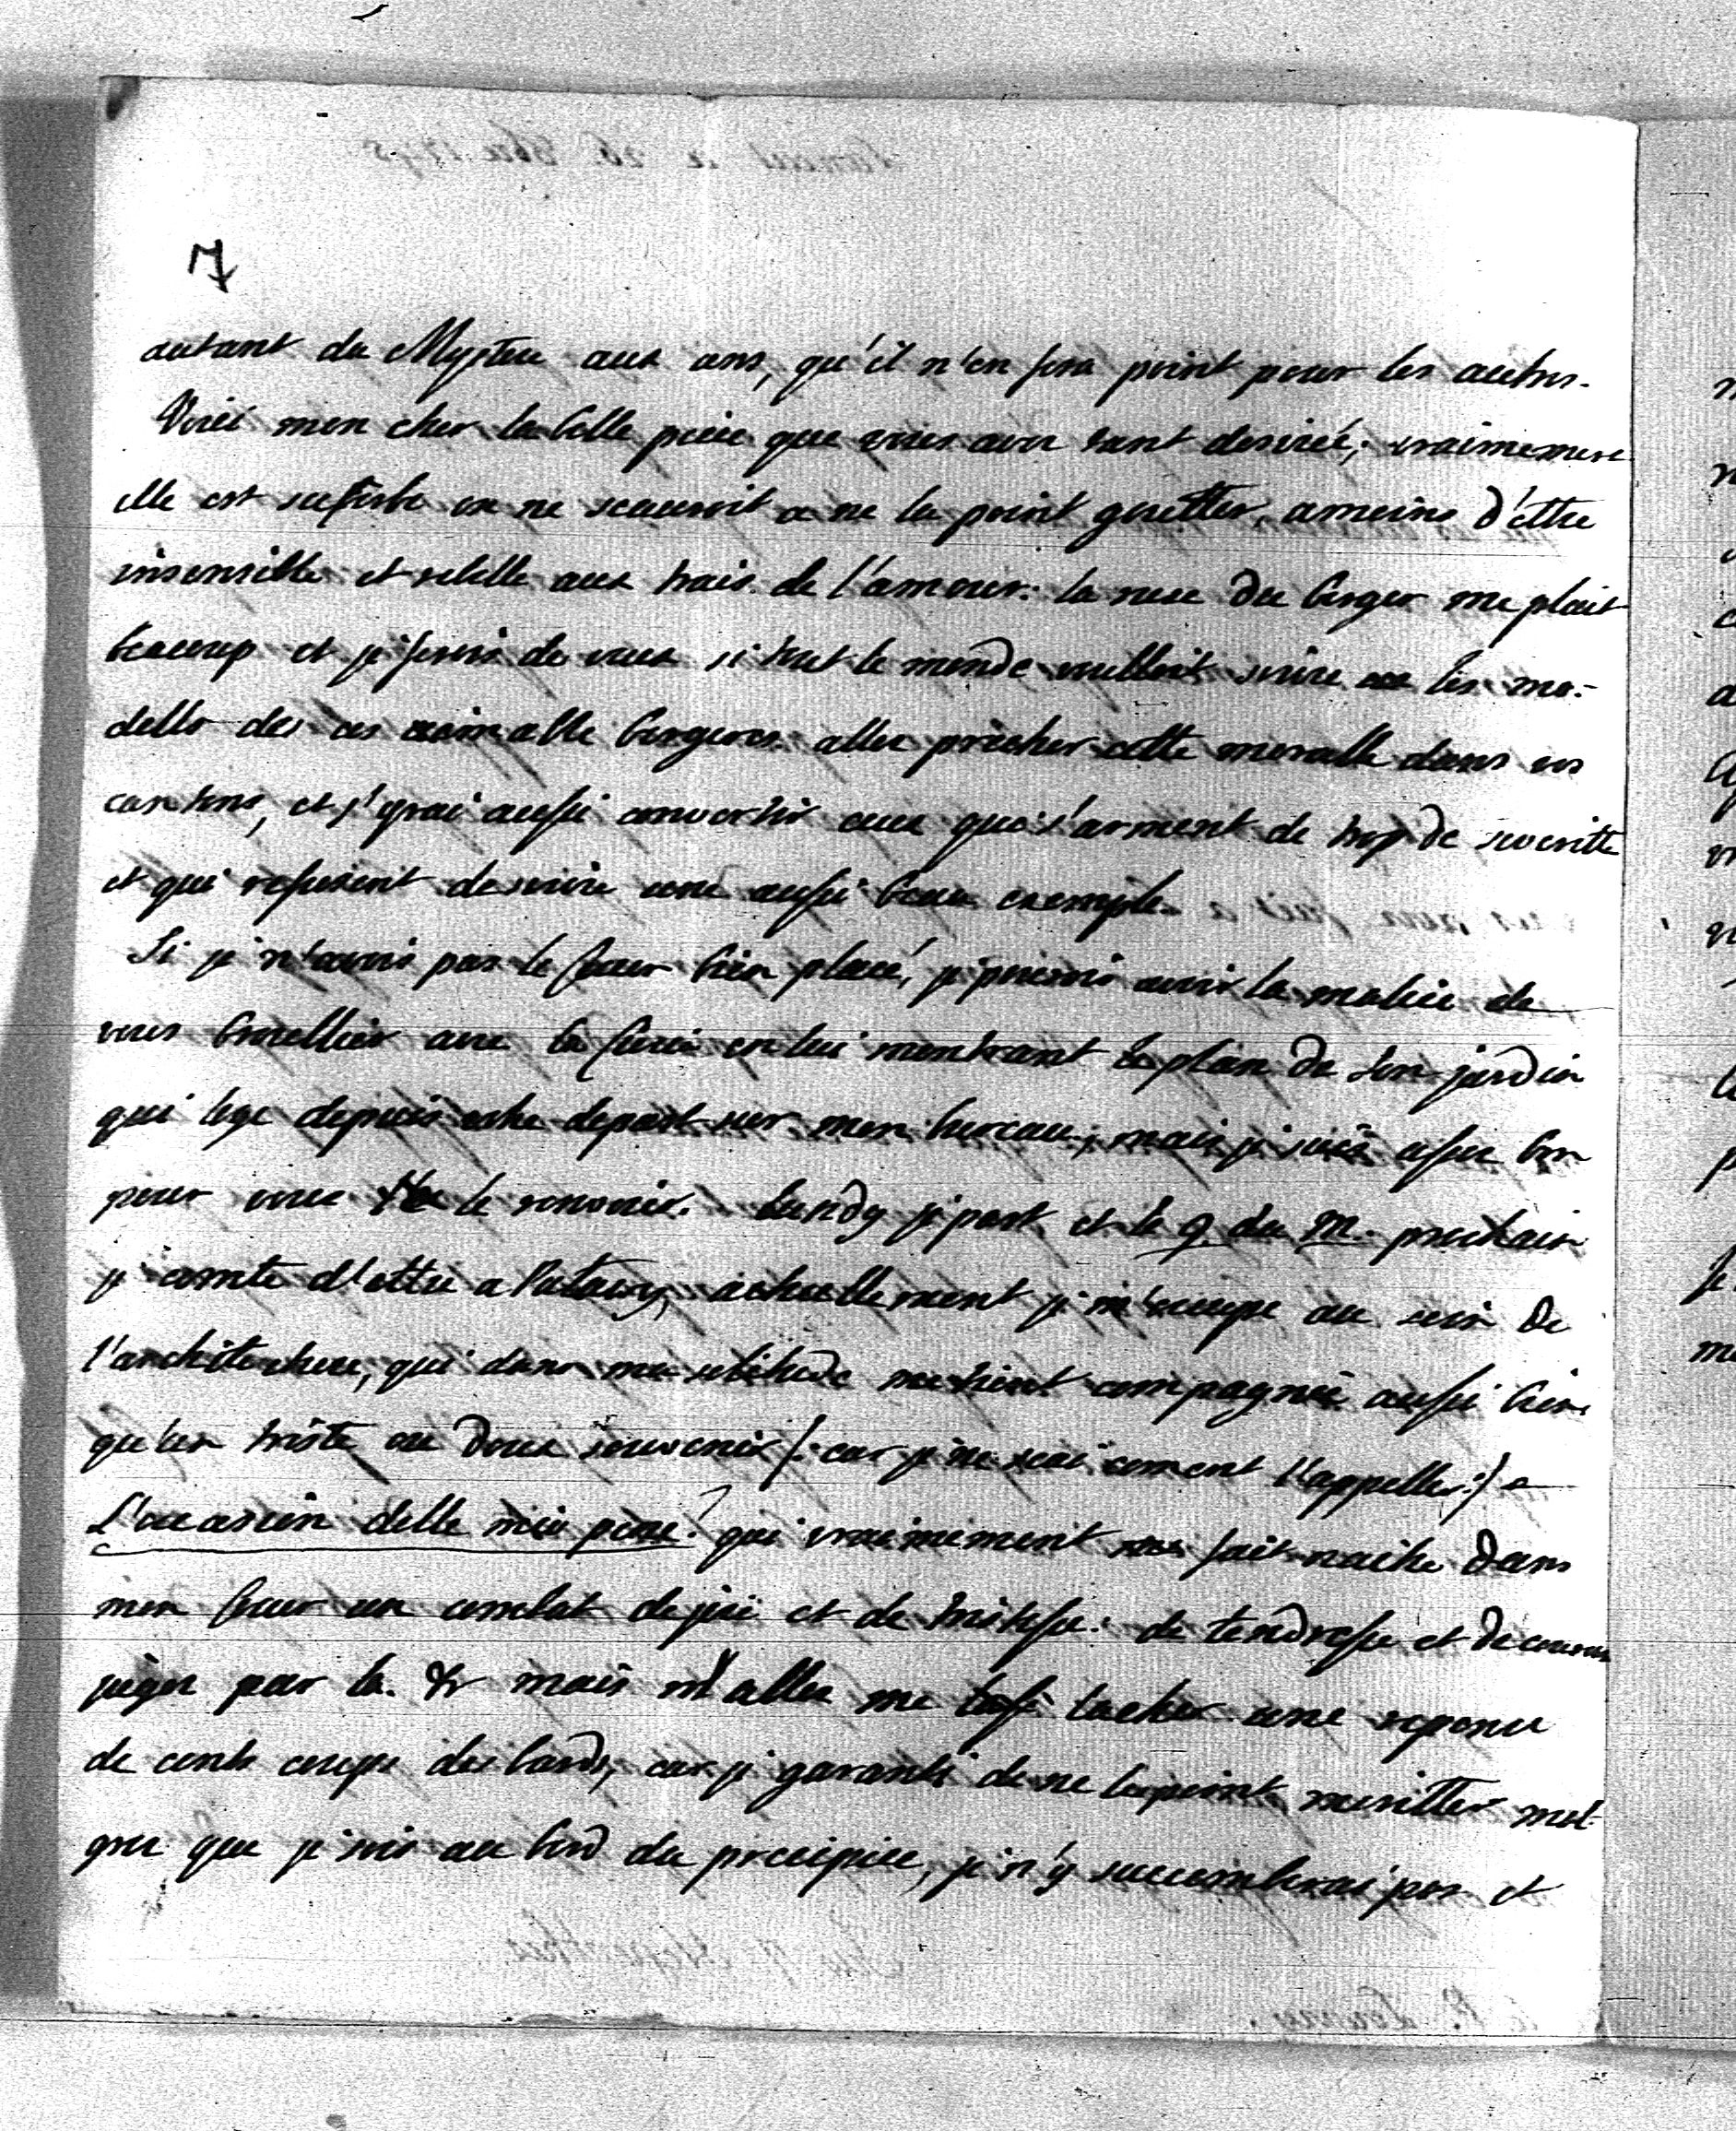 7
autant de Mystere aux uns, qu'il n'en fera point pour les autres.
Voici mon cher la belle piece que vous avez tant desirée; vraimement
elle est superbe on ne scauroit a ne la point goutter, amoins d'ettre
insensible et rebelle aux trais de l'amour. la ruse du berger me plait
beaucoup et je serois de vœux si tout le monde voulloit suivre les mo-
dells des ces aimable bergeres. allez prêcher cette moralle dans vos
cantons, et j'yrai aussi convertir ceux qui s'arment de trop de severitte
et qui refusent de suivre une aussi beau exemple.
Si je n'avois pas le cœur bien placé, je pourrois avoir la malice de
vous brouellier avec en lui montrant le plan de son jardin
qui loge depuis votre depart sur mon bureau; mais je suis assez bon
pour vous le renvoier. Lundy je part et le 9 du M. prochain
je comte d'ettre a actuellement je m'occupe au sein de
l'architecture, qui dans ma solitude me tient compagnie aussi bien
qu'un triste ou doux souvenir /: car je ne scai coment l'appeller :/ a
L'occasion delle mie pene! qui vraimement fait naitre dans
mon cœur un combat de joie et de tristesse: de tendresse et de
jugez par la. &r mais n'allez me lacher une reponse
de cents coups des bards, car je garantis de ne les point meritter mal-
gre que je sois au bord du precipice, je n'y succomberai pas et